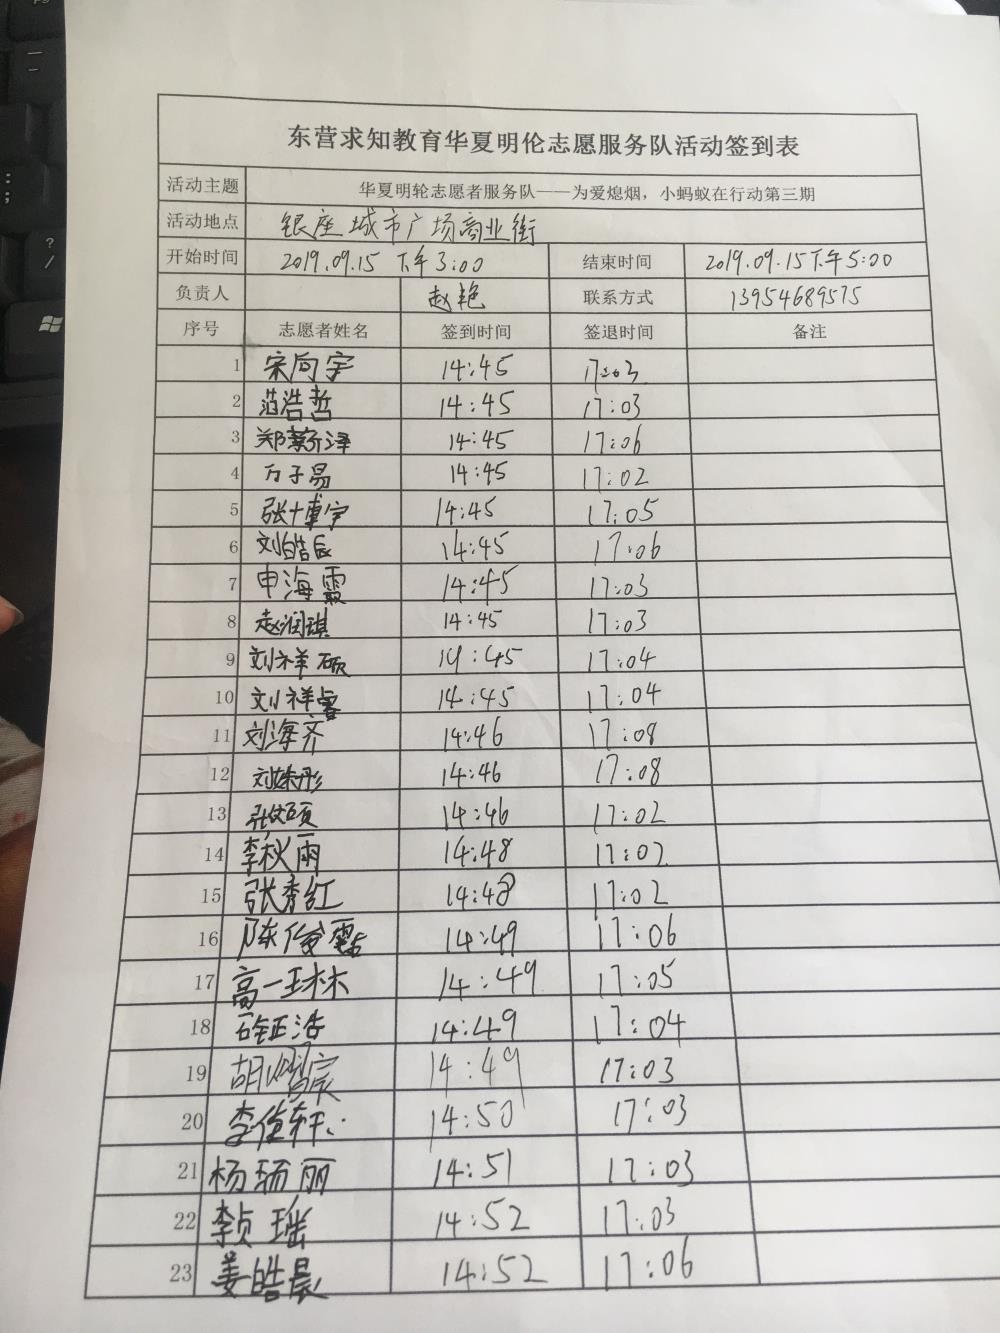 东营求知教育华夏明伦志愿服务队活动签到表
活动主题 华夏明轮志愿者服务队——为爱熄烟，小蚂蚁在行动第三期
活动地点 银座城市广场商业街
开始时间 2019.09.15 下午3:00 结束时间 2019.09.15下午5:00
负责人 赵艳 联系方式 13954689575
序号 志愿者姓名 签到时间 签退时间 备注
1 宋向宇 14:45 17:03
2 范浩哲 14:45 17:03
3 郑蕲泽 14:45 17:06
4 万子易 14:45 17:02
5 张博宇 14:45 17:05
6 刘皓辰 14:45 17:06
7 申海霞 14:45 17:03
8 赵润琪 14:45 17:03
9 刘祥硕 14:45 17:04
10 刘祥睿 14:45 17:04
11 刘海齐 14:46 17:08
12 刘姝彤 14:46 17:08
13 14:46 17:02
14 李秋雨 14:48 17:02
15 张秀红 14:48 17:02
16 陈俊霑 14:49 17:06
17 高一琳 14:49 17:05
18 14:49 17:04
19 14:49 17:03
20 李俊轩 14:50 17:03
21 杨丽 14:51 17:03
22 李贞瑶 14:52 17:03
23 姜皓晨 14:52 17:06